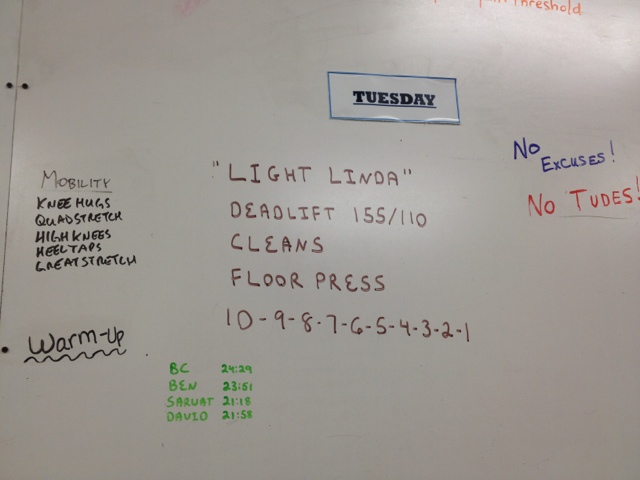 Threshold
TUESDAY
No
EXCUSES!
No TUDES!
MOBILITY
KNEE HUGS
QUADSTRETCH
HIGH KNEES
HEEL TAPS
GREAT STRETCH
"LIGHT LINDA"
DEADLIFT 155/110
CLEANS
FLOOR PRESS
10-9-8-7-6-5-4-3-2-1
Warm-Up
BC 24:29
BEN 23:51
SARVAT 21:18
DAVID 21:58